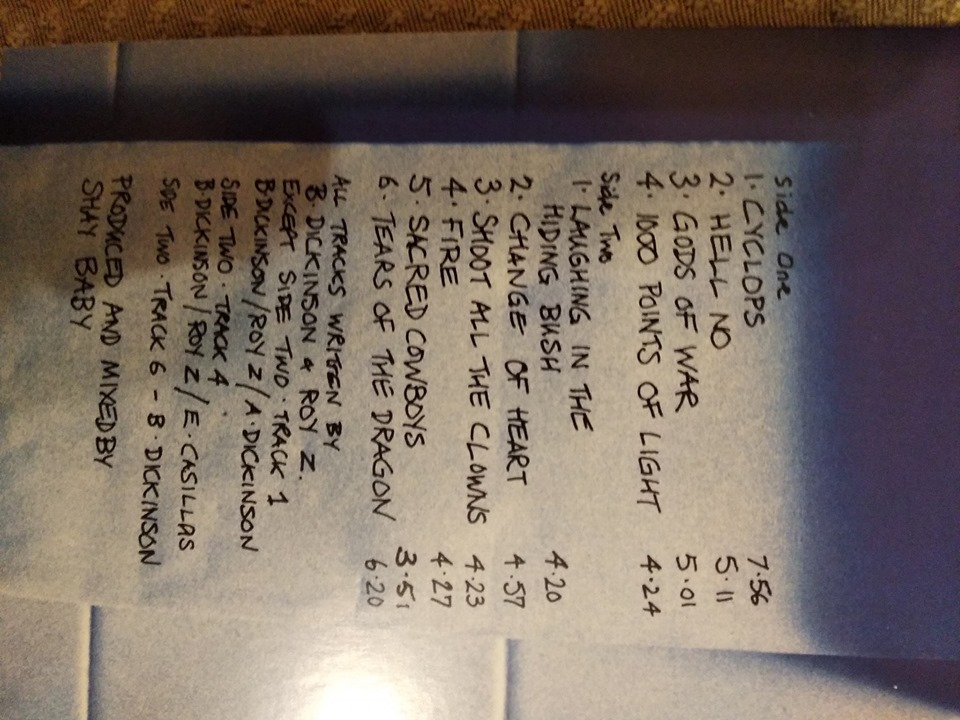 Side One
1. CYCLOPS 7.56
2. HELL NO 5.11
3. GODS OF WAR 5.01
4. 1000 POINTS OF LIGHT 4.24
Side Two
1. LAUGHING IN THE
HIDING BUSH 4.20
2. CHANGE OF HEART 4.57
3. SHOOT ALL THE CLOWNS 4.23
4. FIRE 4.27
5. SACRED COWBOYS 3.51
6. TEARS OF THE DRAGON 6.20
ALL TRACKS WRITTEN BY
B. DICKINSON & ROY Z.
EXCEPT SIDE TWO. TRACK 1
B.DICKINSON/ROY Z/A.DICKINSON
SIDE TWO. TRACK 4.
B.DICKINSON/ROY Z/E.CASILLAS
SIDE TWO. TRACK 6 - B.DICKINSON
PRODUCED AND MIXED BY
SHAY BABY